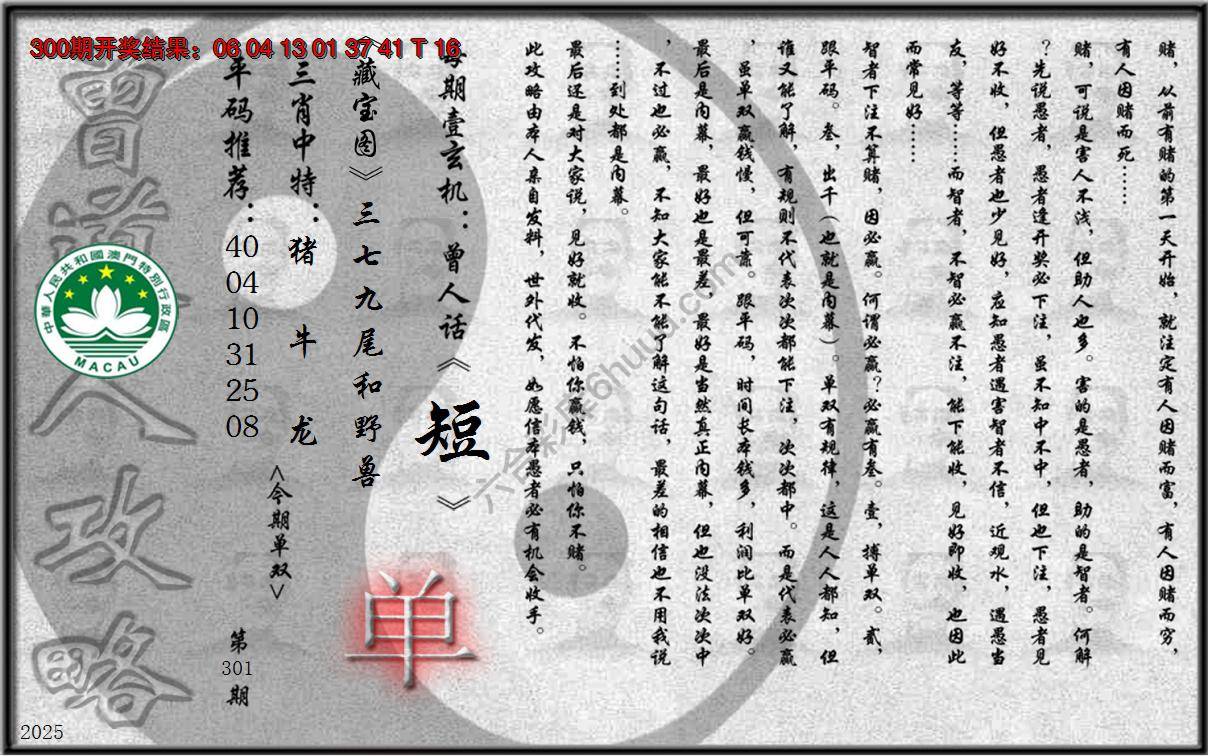 300期开奖结果：06 04 13 01 37 41 T 16
赌，从前有赌的第一天开始，就注定有人因赌而富，有人因赌而穷，
有人因赌而死……
赌，可说是害人不浅，但助人也多。害的是愚者，助的是智者。何解
？先说愚者，愚者逢开奖必下注，虽不知中不中，但也下注，愚者见
好不收，但愚者也少见好，应知愚者遇害智者不信，近观水，遇愚当
友，等等……而智者，不智必赢不注，能下能收，见好即收，也因此
而常见好……
智者下注不算赌，因必赢。何谓必赢？必赢有叁。壹，搏单双。贰，
跟平码。叁，出千（也就是内幕）。单双有规律，这是人人都知，但
谁又能了解，有规则不代表次次都能下注，次次都中。而是代表必赢
，虽单双赢钱慢，但可靠。跟平码，时间长本钱多，利润比单双好。
最后是内幕，最好也是最差，最好是当然真正内幕，但也没法次次中
，不过也必赢，不知大家能不能了解这句话，最差的相信也不用我说
……到处都是内幕。
最后还是对大家说，见好就收。不怕你赢钱，只怕你不赌。
此攻略由本人亲自发料，世外代发，如愿信本愚者必有机会收手。
每期壹玄机：曾人话《短》
《藏宝图》三七九尾和野兽
单
三肖中特：猪 牛 龙
<今期单双>
平码推荐：40 04 10 31 25 08
第301期
曾道人攻略
中華人民共和國澳門特別行政區
MACAU
2025